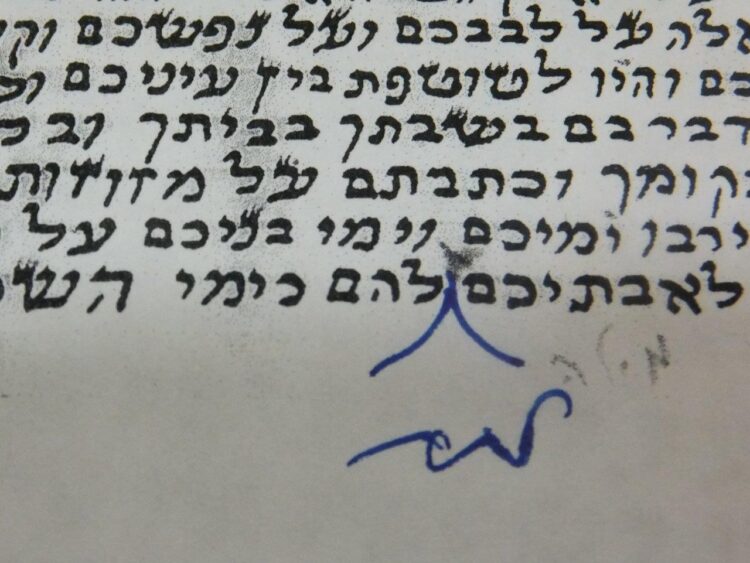 אלה על לבבכם ועל נפשכם וק
כם והיו לטוטפת בין עיניכם ול
דבר בם בשבתך בביתך ובל
קומך וכתבתם על מזוזות
ירבו ימיכם וימי בניכם על
לאבתיכם להם כימי הש